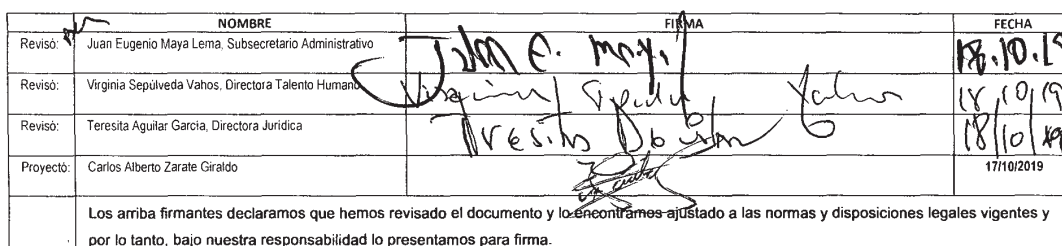 NOMBRE FIRMA FECHA
Revisó: Juan Eugenio Maya Lema, Subsecretario Administrativo Juan E. Maya L 18.10.19
Revisó: Virginia Sepúlveda Vahos, Directora Talento Humano Virginia Sepúlveda Vahos 18/10/19
Revisó: Teresita Aguilar Garcia, Directora Jurídica Teresita Aguilar 18/10/19
Proyectó: Carlos Alberto Zarate Giraldo 17/10/2019
Los arriba firmantes declaramos que hemos revisado el documento y lo encontramos ajustado a las normas y disposiciones legales vigentes y
por lo tanto, bajo nuestra responsabilidad lo presentamos para firma.